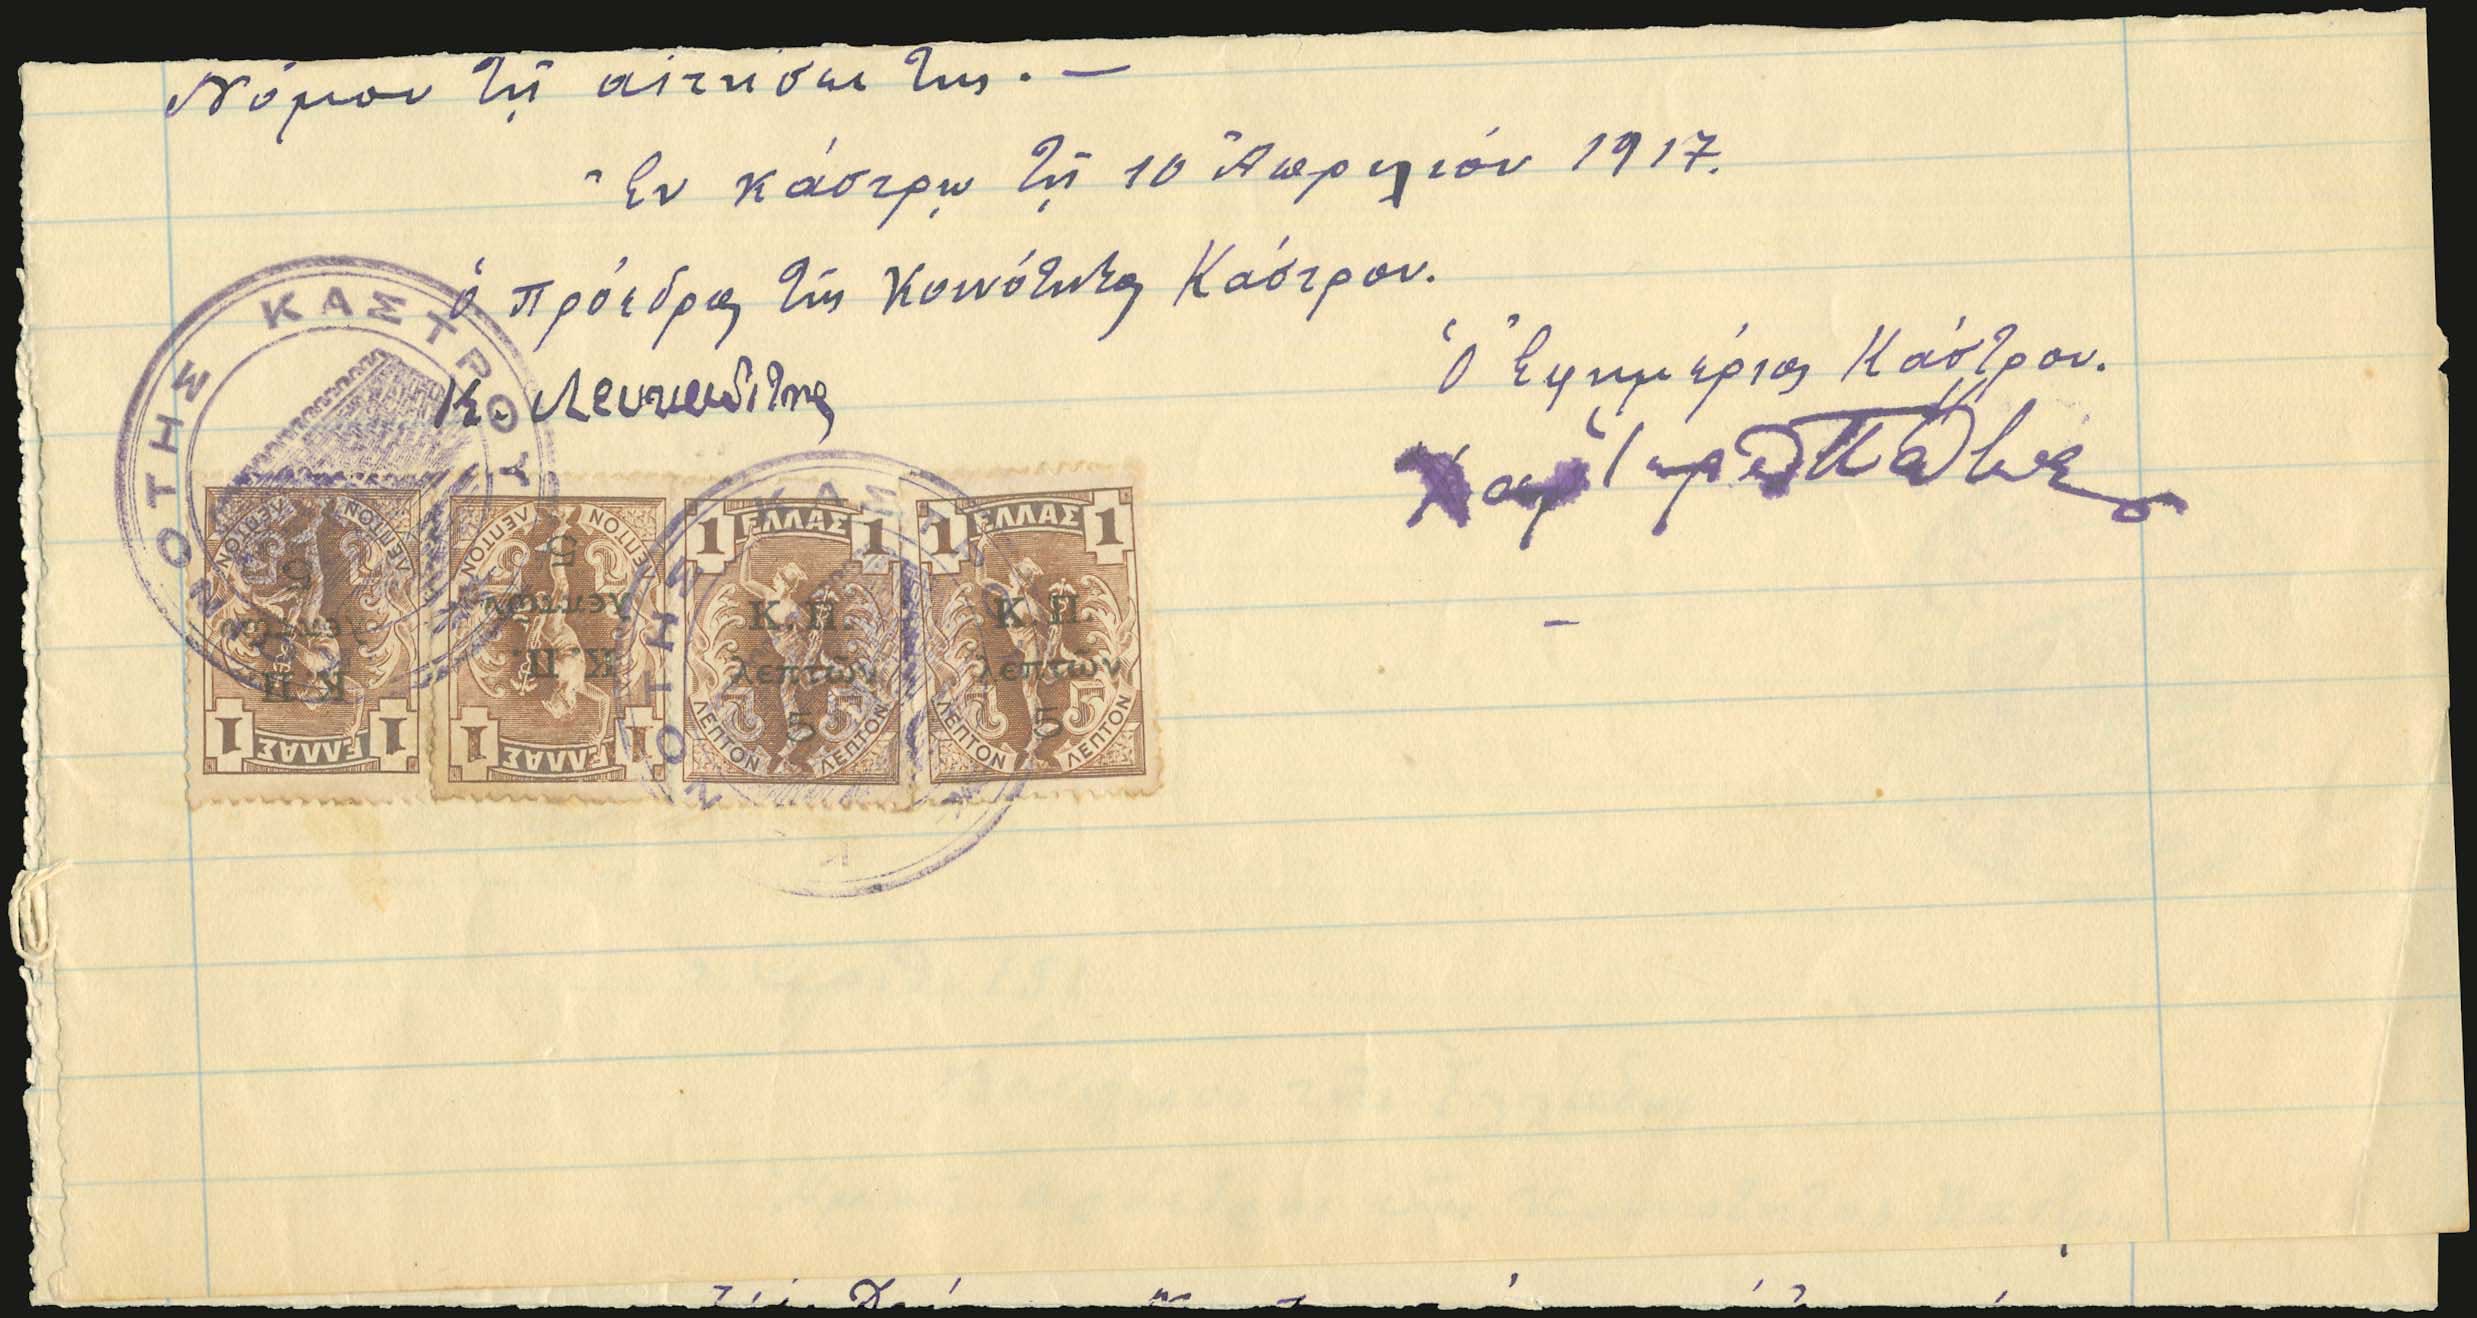 Νόμον τῇ αἰτήσει της. —
Ἐν Κάστρῳ τῇ 10 Ἀπριλίου 1917.
Ὁ Πρόεδρος τῆς Κοινότητος Κάστρου.
Κ. Λευκαδίτης
Ὁ Ἐφημέριος Κάστρου.
ΝΟΤΗΣ ΚΑΣΤΡΟΥ
ΕΛΛΑΣ
1 1
ΛΕΠΤΟΝ ΛΕΠΤΟΝ
Κ. Π.
λεπτῶν
5
ΕΛΛΑΣ
1 1
ΛΕΠΤΟΝ ΛΕΠΤΟΝ
Κ. Π.
λεπτῶν
5
1 ΕΛΛΑΣ 1
Κ. Π.
λεπτῶν
5
ΛΕΠΤΟΝ ΛΕΠΤΟΝ
1 ΕΛΛΑΣ 1
Κ. Π.
λεπτῶν
5
ΛΕΠΤΟΝ ΛΕΠΤΟΝ
ΝΟΤΗΣ ΚΑΣ